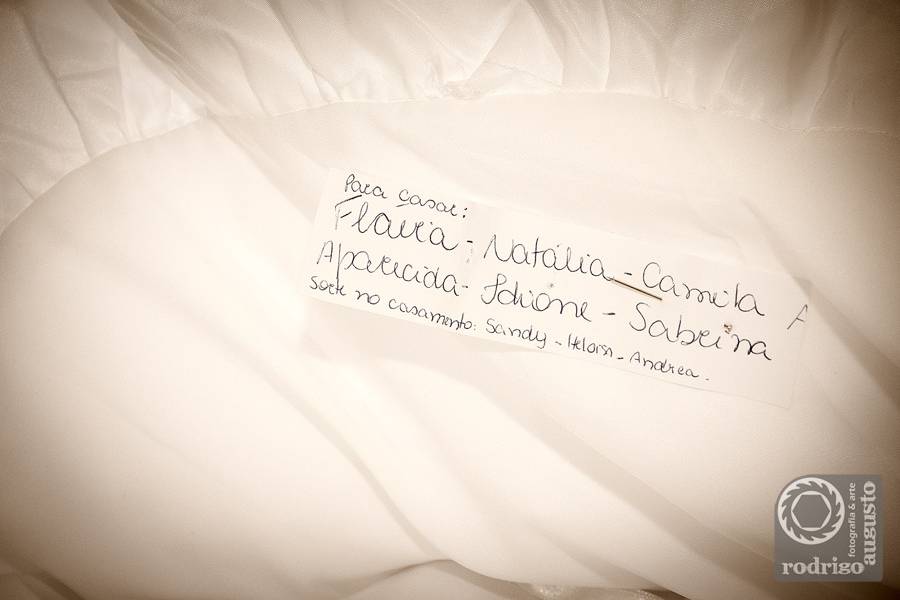 Para casar:
Flavia - Natália - Camila A
Aparecida - Idione - Sabrina
Sorte no casamento: Sandy - Heloisa - Andrea.
rodrigo
augusto
fotografia & arte